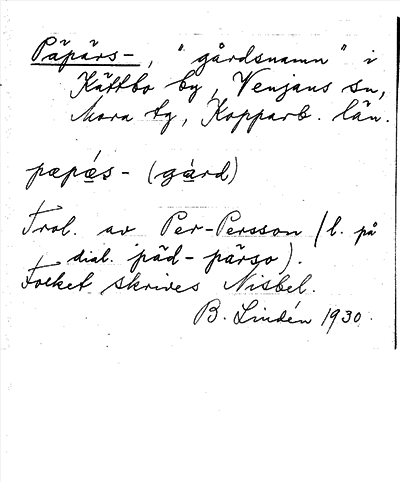 Päpärs-, "gårdsnamn" i
Kättbo by, Venjans sn,
Mora tg, Kopparb. län.
pæpǽs- (gård)
Trol. av Per-Persson (l. på
dial. päd-pärso).
Folket skrives Nisbel.
B. Lindén 1930.